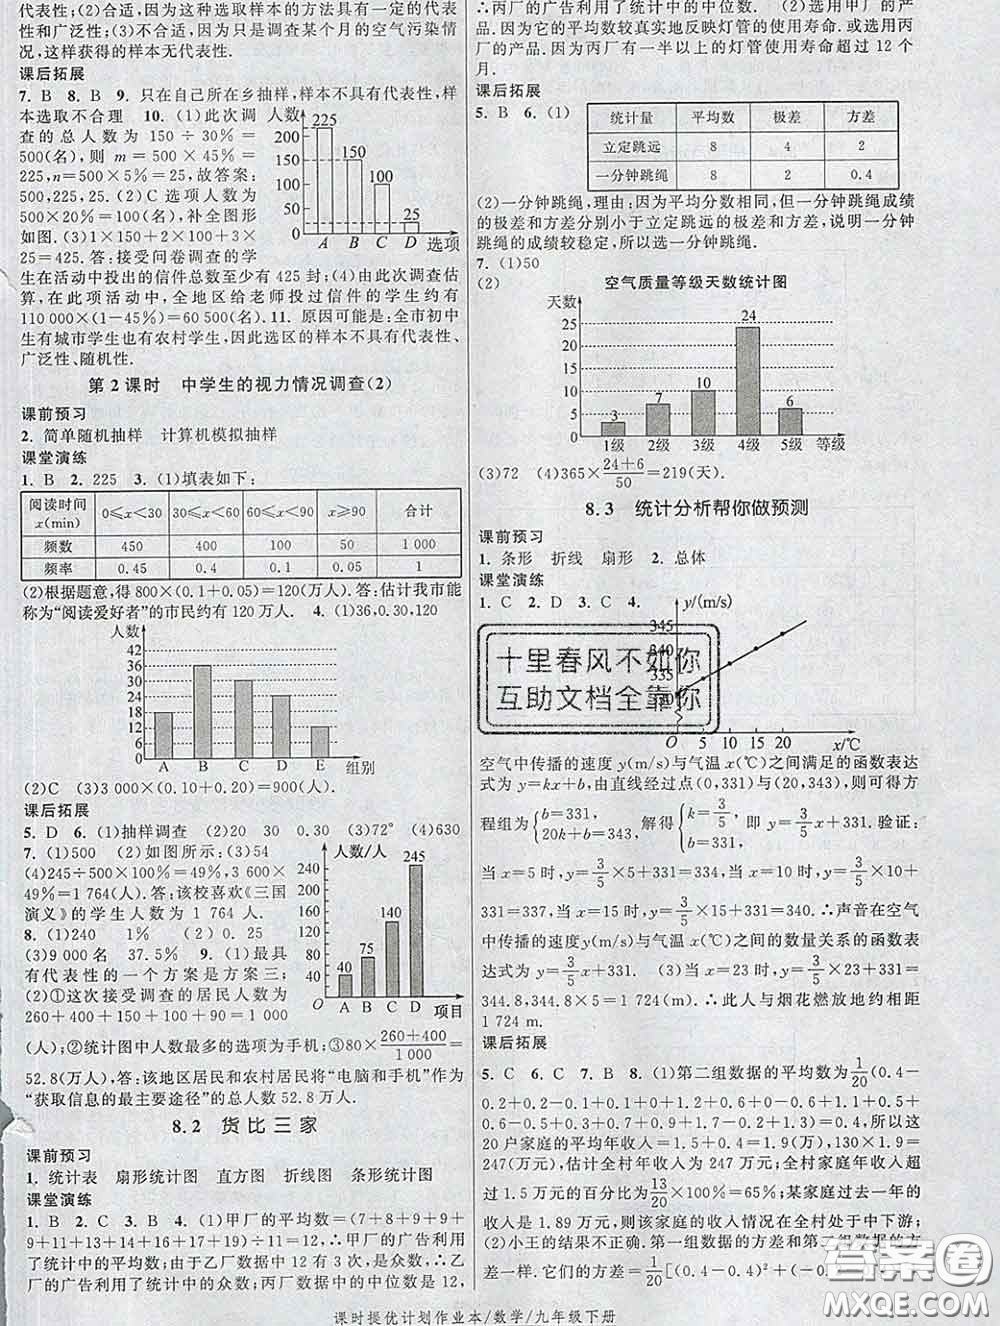 合适,因为这种选取样本的方法具有一定的代表
性和广泛性;(3)不合适,因为只调查某个月的空气污染情
况,这样获得的样本无代表性.
课后拓展
7. B 8. B 9. 只在自己所在乡抽样,样本不具有代表性,样
本选取不合理 10. (1)此次调
查的总人数为 150÷30%=
500(名),则 m=500×45%=
225,n=500×5%=25,故答案:
500,225,25. (2)C 选项人数为
500×20%=100(名),补全图形
如图. (3)1×150+2×100+3×
25=425. 答:接受问卷调查的学
生在活动中投出的信件总数至少有 425 封;(4)由此次调查估
算,在此项活动中,全地区给老师投过信件的学生约有
110 000×(1-45%)=60 500(名). 11. 原因可能是:全市初中
生有城市学生也有农村学生,因此选区的样本不具有代表性、
广泛性、随机性.
人数
225
200
150
150
100
100
50
25
0 A B C D 选项
第 2 课时 中学生的视力情况调查(2)
课前预习
2. 简单随机抽样 计算机模拟抽样
课堂演练
1. B 2. 225 3. (1)填表如下:
阅读时间 x(min) 0≤x<30 30≤x<60 60≤x<90 x≥90 合计
频数 450 400 100 50 1 000
频率 0.45 0.4 0.1 0.05 1
(2)根据题意,得 800×(0.1+0.05)=120(万人). 答:估计我市能
称为“阅读爱好者”的市民约有 120 万人. 4. (1)36,0.30,120
人数
42
36
30
24
18
12
6
0 A B C D E 组别
(2)C (3)3 000×(0.10+0.20)=900(人).
课后拓展
5. D 6. (1)抽样调查 (2)20 30 0.30 (3)72° (4)630
7. (1)500 (2)如图所示:(3)54
(4)245÷500×100%=49%,3 600×
49%=1 764(人). 答:该校喜欢《三国
演义》的学生人数为 1 764 人.
8. (1)240 1% (2)0.25
(3)9 000 名 37.5% 9. (1)最具
有代表性的一个方案是方案三;
(2)①这次接受调查的居民人数为
260+400+150+100+90=1 000
(人);②统计图中人数最多的选项为手机;③80×260+400/1 000=
52.8(万人),答:该地区居民和农村居民将“电脑和手机”作为
“获取信息的最主要途径”的总人数 52.8 万人.
人数/人
240
210
180
160
120
90
60
30
40
75
140
245
O A B C D 项目
8.2 货比三家
课前预习
1. 统计表 扇形统计图 直方图 折线图 条形统计图
课堂演练
1. B 2. C 3. B 4. (1)甲厂的平均数=(7+8+9+9+
9+11+13+14+16+17+19)÷11=12,∴甲厂的广告利用
了统计中的平均数;由于乙厂数据中 12 有 3 次,是众数,∴乙
厂的广告利用了统计中的众数;丙厂数据中的中位数是 12,
∴丙厂的广告利用了统计中的中位数. (2)选用甲厂的产
品. 因为它的平均数较真实地反映灯管的使用寿命,或选用丙
厂的产品. 因为丙厂有一半以上的灯管使用寿命超过 12 个
月.
课后拓展
5. B 6. (1)
统计量 平均数 极差 方差
立定跳远 8 4 2
一分钟跳绳 8 2 0.4
(2)一分钟跳绳,理由:因为平均分数相同,但一分钟跳绳成绩
的极差和方差分别小于立定跳远的极差和方差,说明一分钟
跳绳的成绩较稳定,所以选一分钟跳绳.
7. (1)50
(2)
空气质量等级天数统计图
天数
25
20
15
10
5
0
3
7
10
24
6
1级 2级 3级 4级 5级 等级
(3)72 (4)365×24+6/50=219(天).
8.3 统计分析帮你做预测
课前预习
1. 条形 折线 扇形 2. 总体
课堂演练
1. C 2. D 3. C 4.
y/(m/s)
345
340
335
O 5 10 15 20 x/℃
十里春风不如你
互助文档全靠你
空气中传播的速度 y(m/s)与气温 x(℃)之间满足的函数表达
式为 y=kx+b,由直线经过点(0,331)与(20,343),则可得方
程组为{b=331, 20k+b=343, 解得{k=3/5, b=331, 即 y=3/5x+331. 验证:
当 x=5 时,y=3/5×5+331=334,当 x=10 时,y=3/5×10+
331=337,当 x=15 时,y=3/5×15+331=340. ∴声音在空气
中传播的速度 y(m/s)与气温 x(℃)之间的数量关系的函数表
达式为 y=3/5x+331. (3)当 x=23 时,y=3/5×23+331=
344.8,344.8×5=1 724(m). ∴此人与烟花燃放地约相距
1 724 m.
课后拓展
5. C 6. C 7. B 8. (1)第二组数据的平均数为1/20(0.4-
0.1+0.2+0.1+0.2+0.1+0.6-0-0.6+1.1+0.5+
0.6+0.5+0.7+0.3+0.7+0.6+0.6+1.3)=0.4,所以这
20 户家庭的平均年收入=1.5+0.4=1.9(万元),130×1.9=
247(万元),估计全村年收入为 247 万元;全村家庭年收入超
过 1.5 万元的百分比为13/20×100%=65%;某家庭过去一年的
收入是 1.89 万元,则该家庭的收入情况在全村处于中下游;
(2)小王的结果不正确. 第一组数据的方差和第二组数据的方
差一样. 它们的方差=1/20[(0.4-0.4)²+(-0.
答案圈
MXQE.COM
课时提优计划作业本/数学/九年级下册